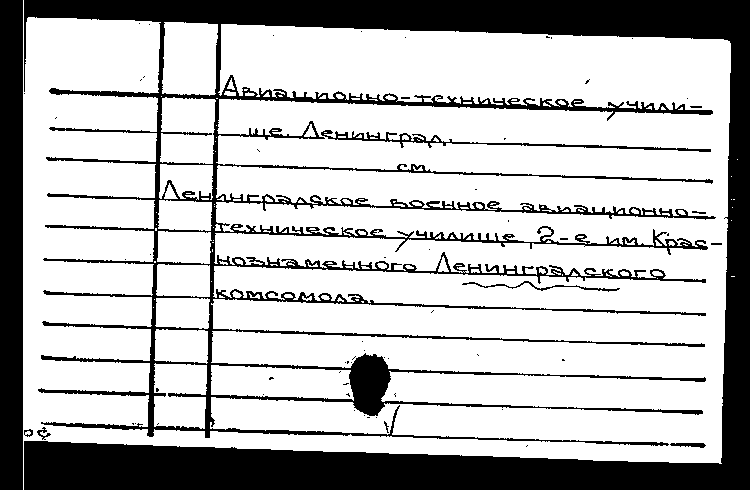 Авиационно-техническое учили-
ще. Ленинград.
см.
Ленинградское военное авиационно-
техническое училище, 2-е им. Крас-
нознаменного Ленинградского
комсомола.